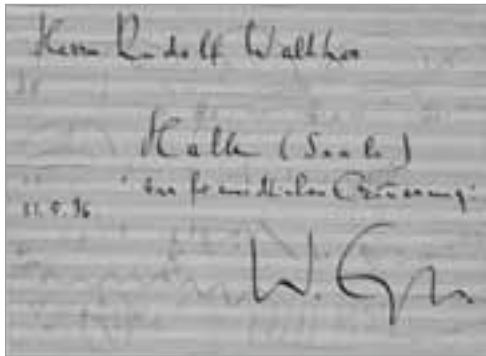 Herrn Rudolf Walther
Halle (Saale)
zur freundlichen Erinnerung.
W.